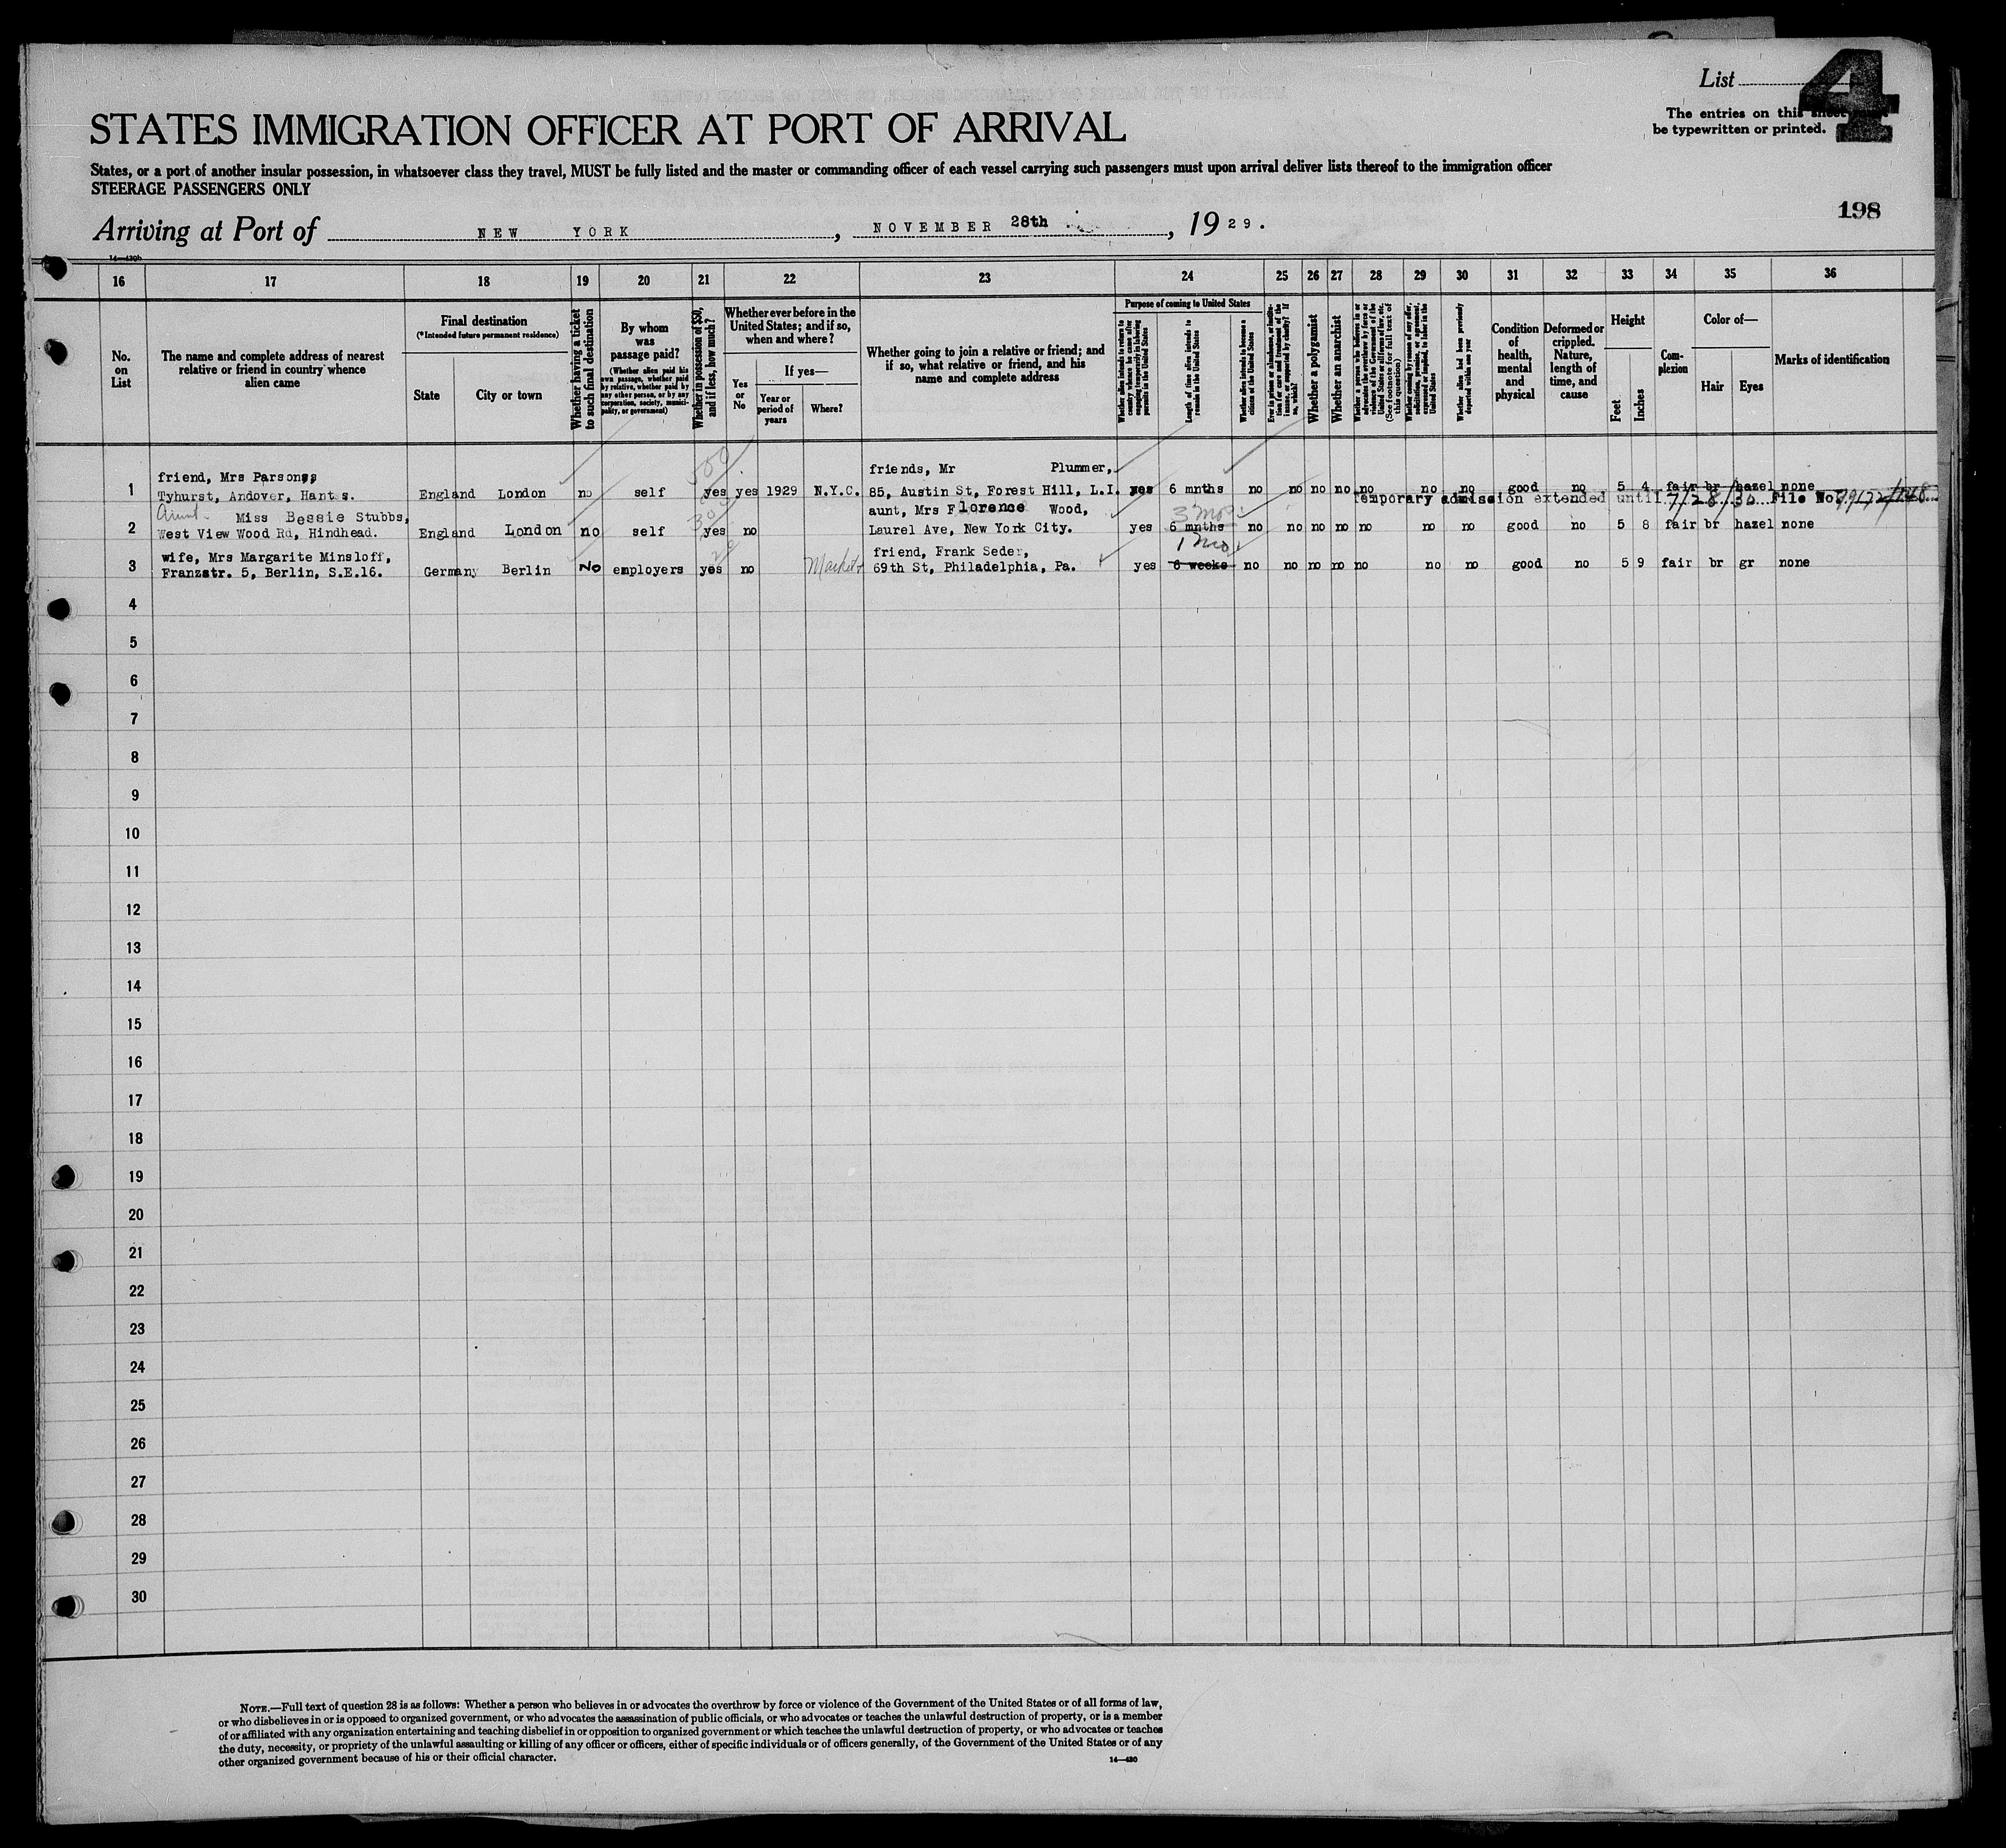 List 4
The entries on this sheet
be typewritten or printed.
STATES IMMIGRATION OFFICER AT PORT OF ARRIVAL
States, or a port of another insular possession, in whatsoever class they travel, MUST be fully listed and the master or commanding officer of each vessel carrying such passengers must upon arrival deliver lists thereof to the immigration officer
STEERAGE PASSENGERS ONLY
198
Arriving at Port of NEW YORK, NOVEMBER 28th, 1929.
14—430b
16 17 18 19 20 21 22 23 24 25 26 27 28 29 30 31 32 33 34 35 36
No. on List
The name and complete address of nearest relative or friend in country whence alien came
Final destination
(*Intended future permanent residence)
State
City or town
Whether having a ticket to such final destination
By whom was passage paid?
(Whether alien paid his own passage, whether paid by relative, whether paid by any other person, or by any corporation, society, municipality, or government)
Whether in possession of $50, and if less, how much?
Whether ever before in the United States; and if so, when and where?
Yes or No
If yes—
Year or period of years
Where?
Whether going to join a relative or friend; and if so, what relative or friend, and his name and complete address
Purpose of coming to United States
Whether alien intends to return to country whence he came after engaging temporarily in laboring pursuits in the United States
Length of time alien intends to remain in the United States
Whether alien intends to become a citizen of the United States
Ever in prison or almshouse, or institution for care and treatment of the insane, or supported by charity? If so, which?
Whether a polygamist
Whether an anarchist
Whether a person who believes in or advocates the overthrow by force or violence of the Government of the United States or all forms of law, etc. (See footnote for full text of this question)
Whether coming by reason of any offer, solicitation, promise, or agreement, expressed or implied, to labor in the United States
Whether alien had been previously deported within one year
Condition of health, mental and physical
Deformed or crippled. Nature, length of time, and cause
Height
Feet
Inches
Com-plexion
Color of—
Hair
Eyes
Marks of identification
500
friend, Mrs Parsons,
friends, Mr Plummer,
1 Tyhurst, Andover, Hants. England London no self yes yes 1929 N.Y.C. 85, Austin St, Forest Hill, L.I. yes 6 mnths no no no no no no no good no 5 4 fair br hazel none
Temporary admission extended until 7/28/30 File No.
Aunt Miss Bessie Stubbs,
300
aunt, Mrs Florence Wood,
3 mos
2 West View Wood Rd, Hindhead. England London no self yes no Laurel Ave, New York City. yes 6 mnths no no no no no no no good no 5 8 fair br hazel none
wife, Mrs Margarite Minsloff,
friend, Frank Seder,
1 mo
3 Franzstr. 5, Berlin, S.E.16. Germany Berlin No employers yes no 69th St, Philadelphia, Pa. yes 6 weeks no no no no no no no good no 5 9 fair br gr none
Market
4
5
6
7
8
9
10
11
12
13
14
15
16
17
18
19
20
21
22
23
24
25
26
27
28
29
30
NOTE.—Full text of question 28 is as follows: Whether a person who believes in or advocates the overthrow by force or violence of the Government of the United States or of all forms of law,
or who disbelieves in or is opposed to organized government, or who advocates the assassination of public officials, or who advocates or teaches the unlawful destruction of property, or is a member
of or affiliated with any organization entertaining and teaching disbelief in or opposition to organized government or which teaches the unlawful destruction of property, or who advocates or teaches
the duty, necessity, or propriety of the unlawful assaulting or killing of any officer or officers, either of specific individuals or of officers generally, of the Government of the United States or of any
other organized government because of his or their official character.
14—430